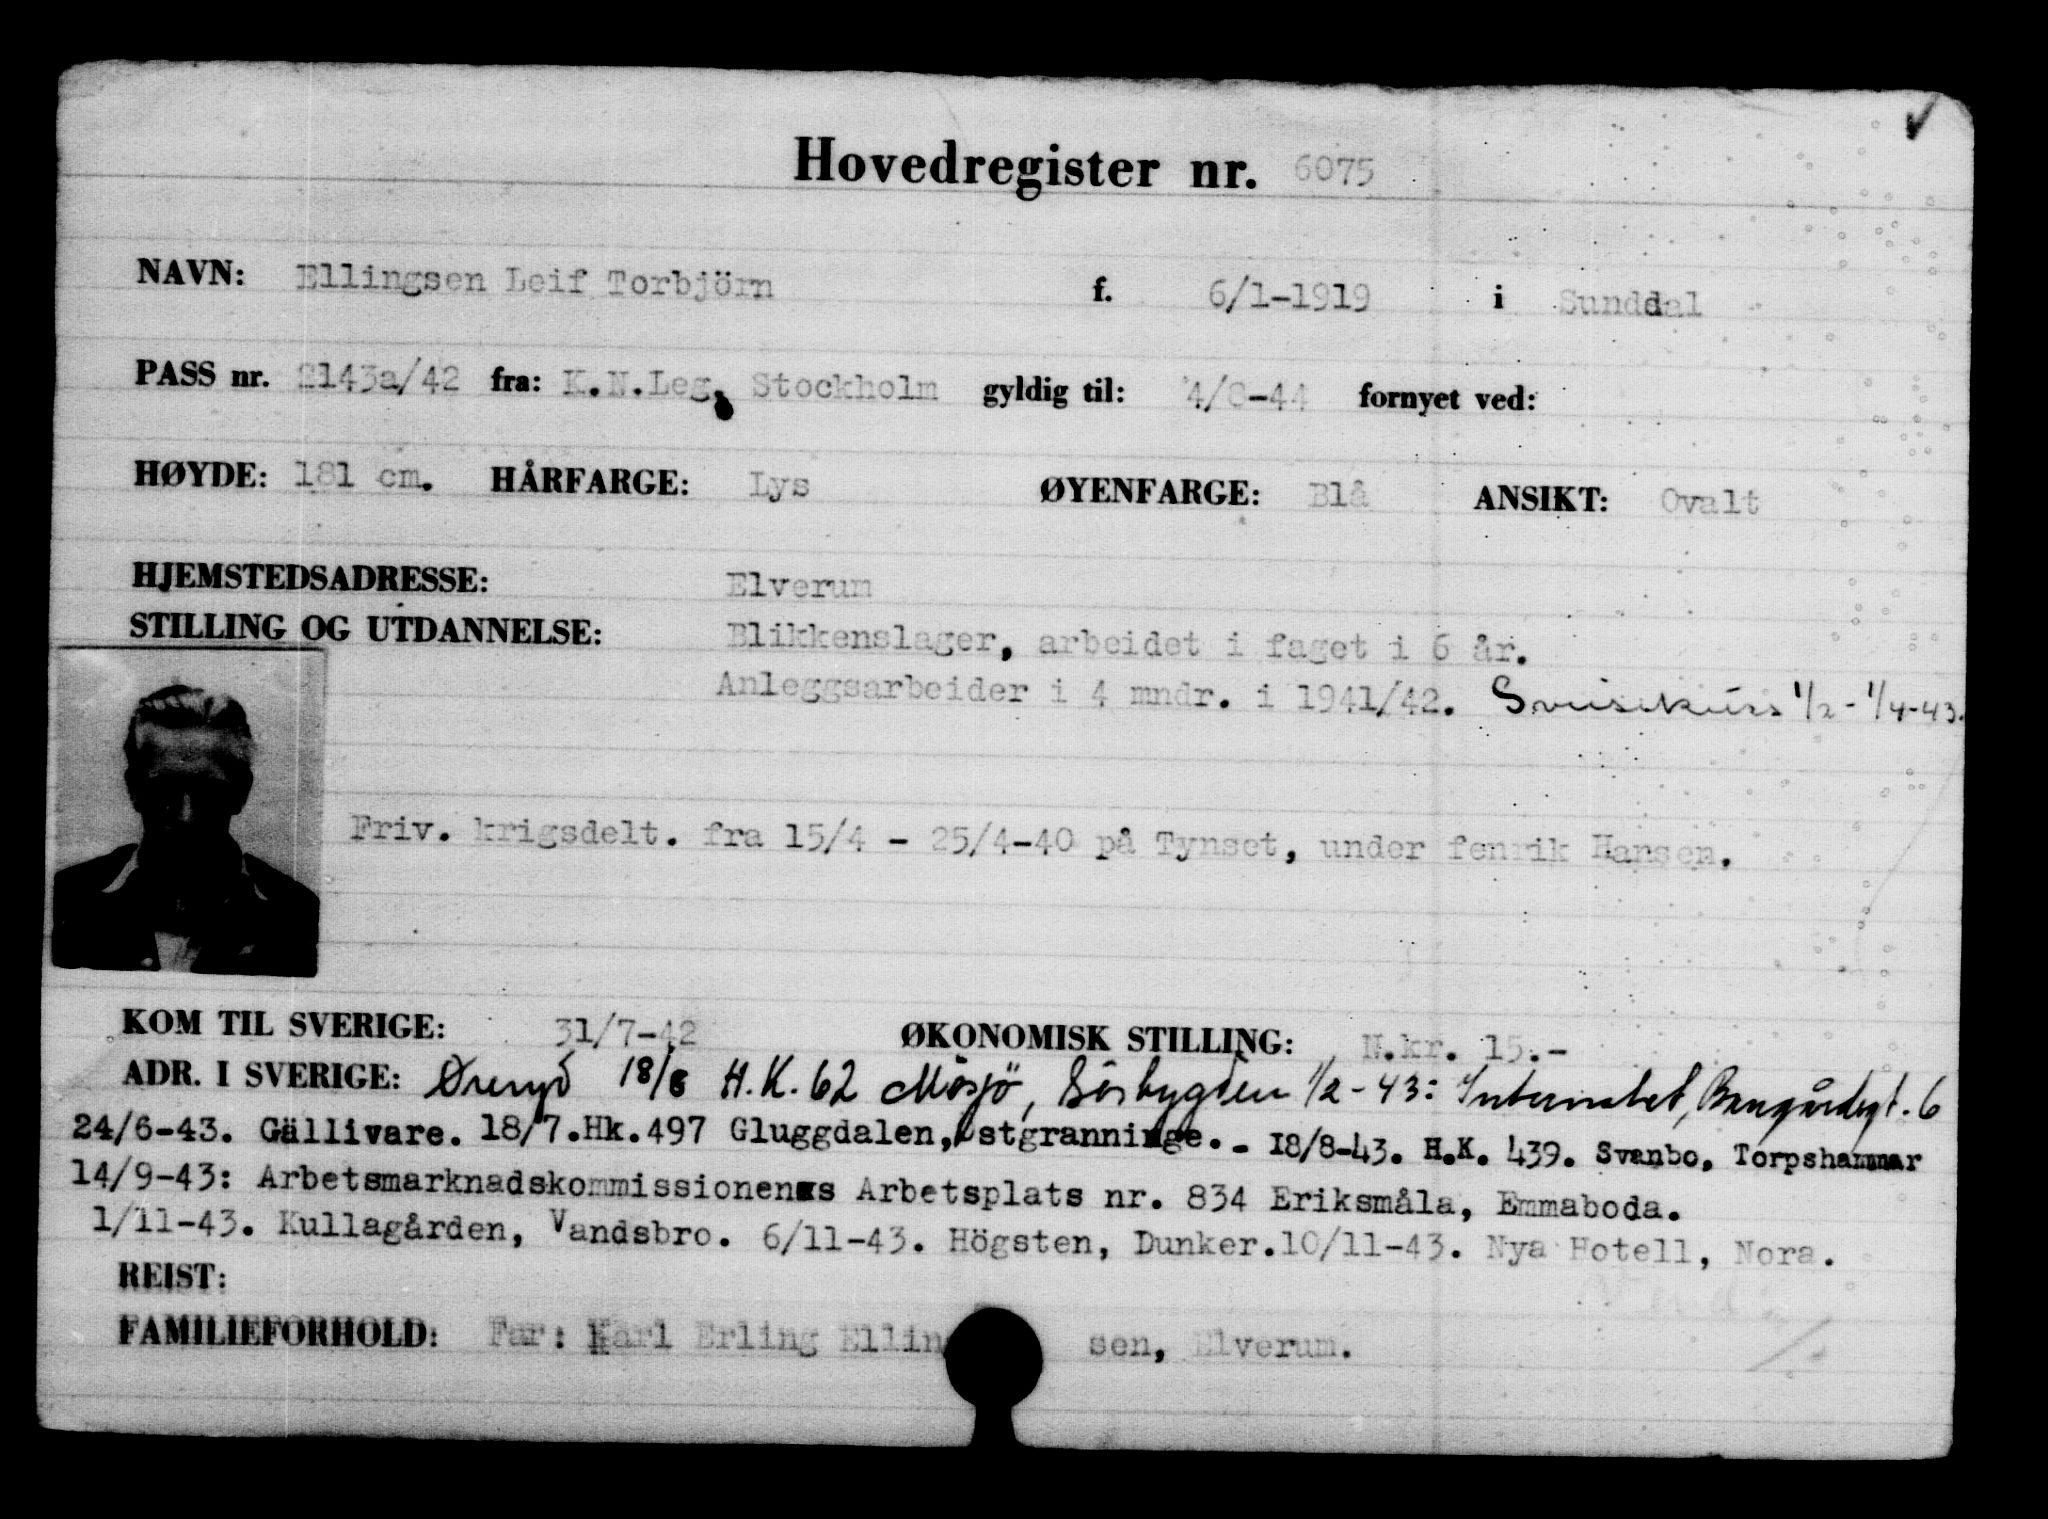 Hovedregister nr. 6075
NAVN: Ellingsen Leif Torbjörn f. 6/1-1919 i Sunddal
PASS nr. 2143a/42 fra: K.N.Leg, Stockholm gyldig til: 4/8-44 fornyet ved:
HØYDE: 181 cm. HÅRFARGE: Lys ØYENFARGE: Blå ANSIKT: Ovalt
HJEMSTEDSADRESSE: Elverum
STILLING OG UTDANNELSE: Blikkenslager, arbeidet i faget i 6 år.
Anleggsarbeider i 4 mndr. i 1941/42. Sveisekurs 1/2 - 1/4-43.
Friv. krigsdelt. fra 15/4 - 25/4-40 på Tynset, under fenrik Hansen.
KOM TIL SVERIGE: 31/7-42 ØKONOMISK STILLING: N.kr. 15.-
ADR. I SVERIGE: Øreryd 18/8 H.K. 62 Mösjö, Sörbygden 1/2-43: Internatet, 6
24/6-43. Gällivare. 18/7.Hk.497 Gluggdalen, Östgranninge.- 18/8-43. H.K. 439. Svanbo, Torpshammar
14/9-43: Arbetsmarknadskommissionens Arbetsplats nr. 834 Eriksmåla, Emmaboda.
1/11-43. Kullagården, Vandsbro. 6/11-43. Högsten, Dunker.10/11-43. Nya Hotell, Nora.
REIST:
FAMILIEFORHOLD: Far: Karl Erling Ellingsen, Elverum.